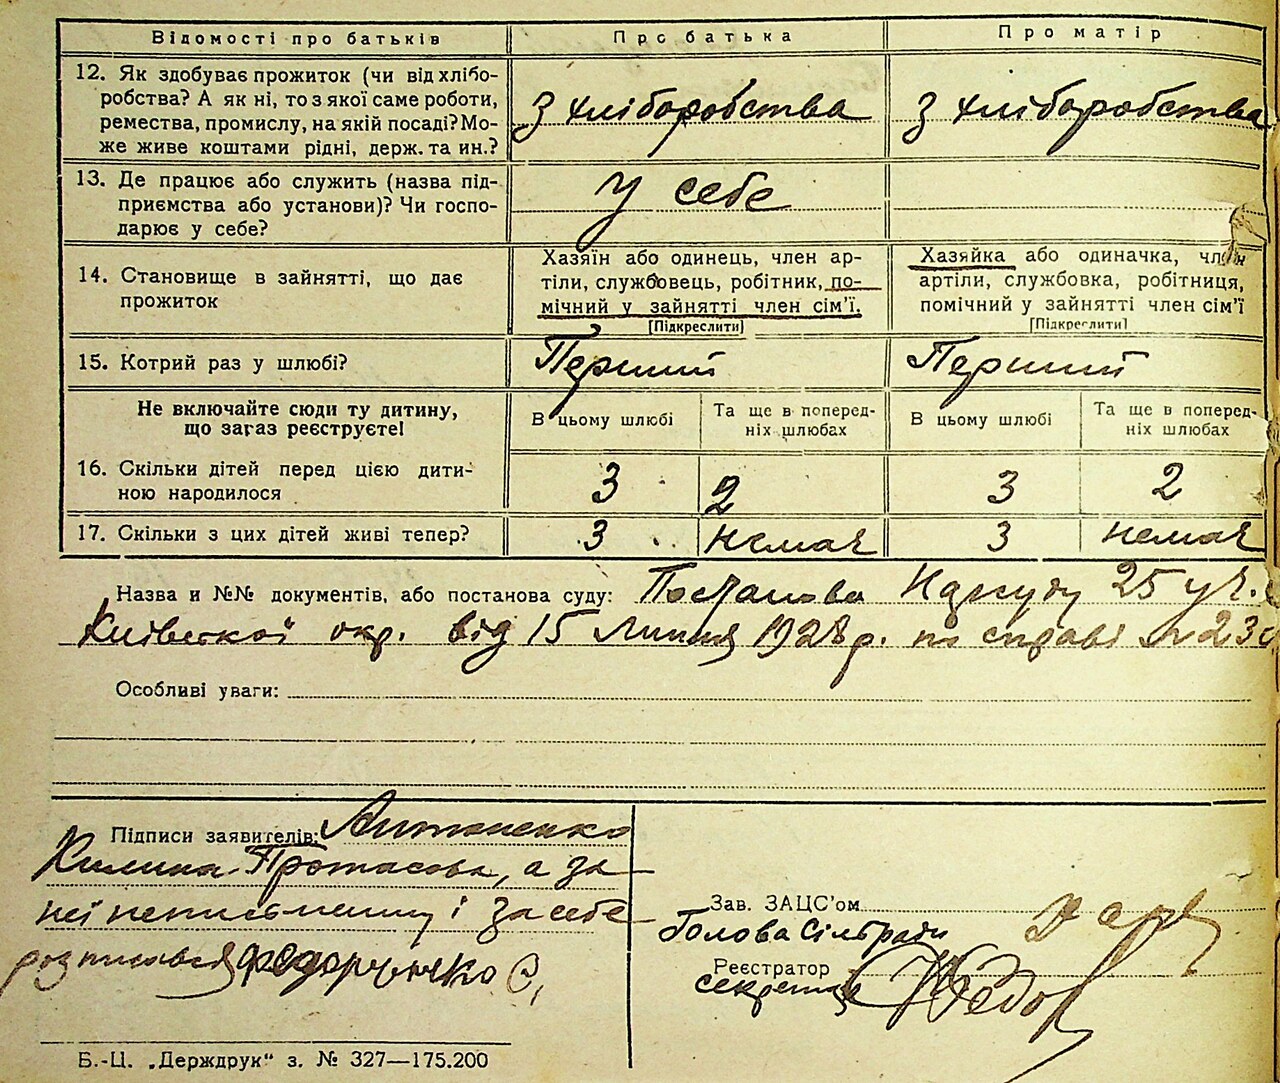 Відомості про батьків
Про батька
Про матір
12. Як здобуває прожиток (чи від хлібо-
робства? А як ні, то з якої саме роботи,
ремества, промислу, на якій посаді? Мо-
же живе коштами рідні, держ. та ин.?
З хліборобства
З хліборобства
13. Де працює або служить (назва під-
приємства або установи)? Чи госпо-
дарює у себе?
У себе
14. Становище в зайнятті, що дає
прожиток
Хазяїн або одинець, член ар-
тіли, службовець, робітник, по-
мічний у зайнятті член сім'ї.
[Підкреслити]
Хазяйка або одиначка, член
артіли, службовка, робітниця,
помічний у зайнятті член сім'ї
[Підкреслити]
15. Котрий раз у шлюбі?
Перший
Перший
Не включайте сюди ту дитину,
що загаз реєструєте!
В цьому шлюбі
Та ще в поперед-
ніх шлюбах
В цьому шлюбі
Та ще в поперед-
ніх шлюбах
16. Скільки дітей перед цією дити-
ною народилося
3
2
3
2
17. Скільки з цих дітей живі тепер?
3
немає
3
немає
Назва и №№ документів, або постанова суду: Постанова Нарсуду 25 уч.
Київської окр. від 15 липня 1928 р. по справі №
Особливі уваги:
Підписи заявителів: Антоненко
Килина Протасова, а за
неї неписьменну і за себе
розписався Федорченко С,
Зав. ЗАЦС'ом
Голова Сільради
Реєстратор
секретар
Б.-Ц. „Держдрук" з. № 327—175.200